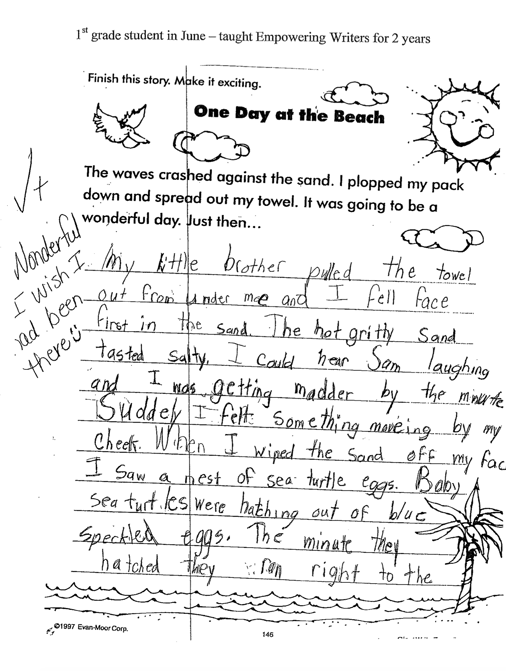 1st grade student in June – taught Empowering Writers for 2 years
Finish this story. Make it exciting.
One Day at the Beach
The waves crashed against the sand. I plopped my pack
down and spread out my towel. It was going to be a
wonderful day. Just then...
√+
Wonderful
I wish I
had been
there
My little brother pulled the towel
out from under mee and I fell face
first in the sand. The hot gritty sand
tasted salty. I could hear Sam laughing
and I was getting madder by the minute
Suddely I felt something moveing by my
cheek. When I wiped the sand off my fac
I saw a nest of sea turtle eggs. Baby
sea turtles were hathing out of blue
speckled eggs. The minute they
hatched they ran right to the
©1997 Evan-Moor Corp.
146